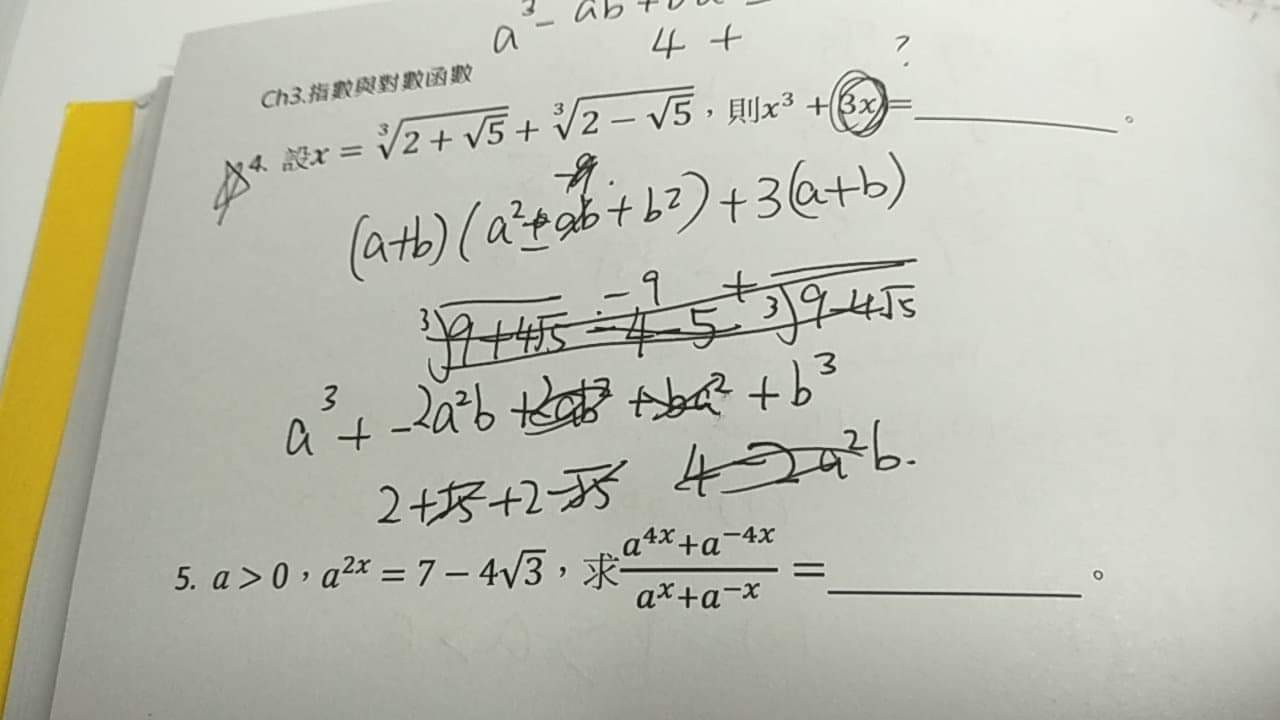 a³ - ab +
4 +
Ch3.指數與對數函數
?
4. 設x = ∛(2 + √5) + ∛(2 − √5),則x³ + 3x = ________。
-9.
(a+b)(a² - ab + b²) + 3(a+b)
-9 +
∛(9+4√5) -4-5 ∛(9-4√5)
a³ + -2a²b +2ab² +ba² + b³
2+√5+2-√5 4-2a²b.
5. a > 0,a²ˣ = 7 − 4√3,求(a⁴ˣ+a⁻⁴ˣ)/(aˣ+a⁻ˣ) = ________。